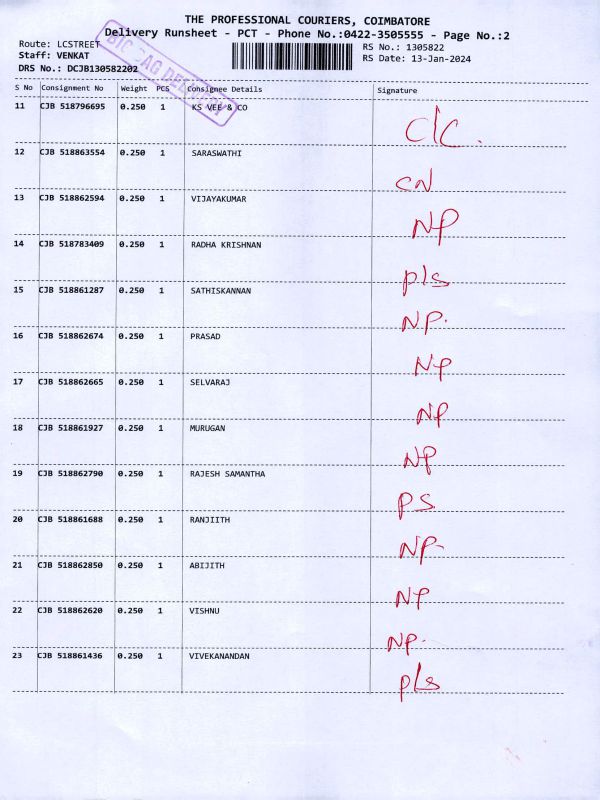 THE PROFESSIONAL COURIERS, COIMBATORE
Delivery Runsheet - PCT - Phone No.:0422-3505555 - Page No.:2
Route: LCSTREET
Staff: VENKAT
DRS No.: DCJB130582202
RS No.: 1305822
RS Date: 13-Jan-2024
BIG BAG DELIVERY
S No Consignment No Weight PCS Consignee Details Signature
11 CJB 518796695 0.250 1 KS VEE & CO C/C.
12 CJB 518863554 0.250 1 SARASWATHI CN
13 CJB 518862594 0.250 1 VIJAYAKUMAR NP
14 CJB 518783409 0.250 1 RADHA KRISHNAN P/s
15 CJB 518861287 0.250 1 SATHISKANNAN NP.
16 CJB 518862674 0.250 1 PRASAD NP
17 CJB 518862665 0.250 1 SELVARAJ NP
18 CJB 518861927 0.250 1 MURUGAN NP
19 CJB 518862790 0.250 1 RAJESH SAMANTHA PS
20 CJB 518861688 0.250 1 RANJIITH NP-
21 CJB 518862850 0.250 1 ABIJITH NP
22 CJB 518862620 0.250 1 VISHNU NP.
23 CJB 518861436 0.250 1 VIVEKANANDAN P/s